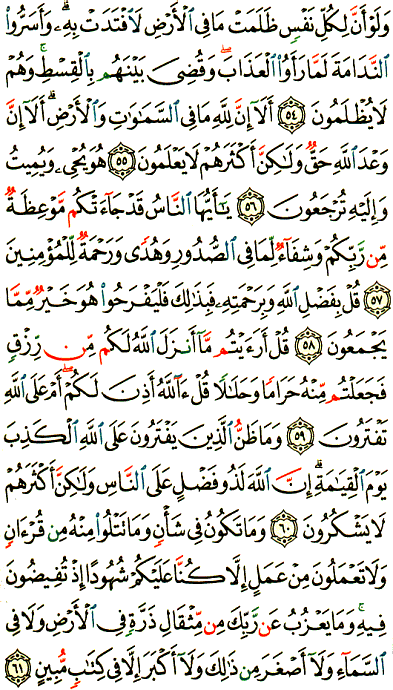 وَلَوۡ أَنَّ لِكُلِّ نَفۡسٖ ظَلَمَتۡ مَا فِي ٱلۡأَرۡضِ لَٱفۡتَدَتۡ بِهِۦۗ وَأَسَرُّواْ
ٱلنَّدَامَةَ لَمَّا رَأَوُاْ ٱلۡعَذَابَۖ وَقُضِيَ بَيۡنَهُم بِٱلۡقِسۡطِ وَهُمۡ
لَا يُظۡلَمُونَ ٥٤ أَلَآ إِنَّ لِلَّهِ مَا فِي ٱلسَّمَٰوَٰتِ وَٱلۡأَرۡضِۗ أَلَآ إِنَّ
وَعۡدَ ٱللَّهِ حَقّٞ وَلَٰكِنَّ أَكۡثَرَهُمۡ لَا يَعۡلَمُونَ ٥٥ هُوَ يُحۡيِۦ وَيُمِيتُ
وَإِلَيۡهِ تُرۡجَعُونَ ٥٦ يَٰٓأَيُّهَا ٱلنَّاسُ قَدۡ جَآءَتۡكُم مَّوۡعِظَةٞ
مِّن رَّبِّكُمۡ وَشِفَآءٞ لِّمَا فِي ٱلصُّدُورِ وَهُدٗى وَرَحۡمَةٞ لِّلۡمُؤۡمِنِينَ
٥٧ قُلۡ بِفَضۡلِ ٱللَّهِ وَبِرَحۡمَتِهِۦ فَبِذَٰلِكَ فَلۡيَفۡرَحُواْ هُوَ خَيۡرٞ مِّمَّا
يَجۡمَعُونَ ٥٨ قُلۡ أَرَءَيۡتُم مَّآ أَنزَلَ ٱللَّهُ لَكُم مِّن رِّزۡقٖ
فَجَعَلۡتُم مِّنۡهُ حَرَامٗا وَحَلَٰلٗا قُلۡ ءَآللَّهُ أَذِنَ لَكُمۡۖ أَمۡ عَلَى ٱللَّهِ
تَفۡتَرُونَ ٥٩ وَمَا ظَنُّ ٱلَّذِينَ يَفۡتَرُونَ عَلَى ٱللَّهِ ٱلۡكَذِبَ
يَوۡمَ ٱلۡقِيَٰمَةِۗ إِنَّ ٱللَّهَ لَذُو فَضۡلٍ عَلَى ٱلنَّاسِ وَلَٰكِنَّ أَكۡثَرَهُمۡ
لَا يَشۡكُرُونَ ٦٠ وَمَا تَكُونُ فِي شَأۡنٖ وَمَا تَتۡلُواْ مِنۡهُ مِن قُرۡءَانٖ
وَلَا تَعۡمَلُونَ مِنۡ عَمَلٍ إِلَّا كُنَّا عَلَيۡكُمۡ شُهُودًا إِذۡ تُفِيضُونَ
فِيهِۚ وَمَا يَعۡزُبُ عَن رَّبِّكَ مِن مِّثۡقَالِ ذَرَّةٖ فِي ٱلۡأَرۡضِ وَلَا فِي
ٱلسَّمَآءِ وَلَآ أَصۡغَرَ مِن ذَٰلِكَ وَلَآ أَكۡبَرَ إِلَّا فِي كِتَٰبٖ مُّبِينٍ ٦١